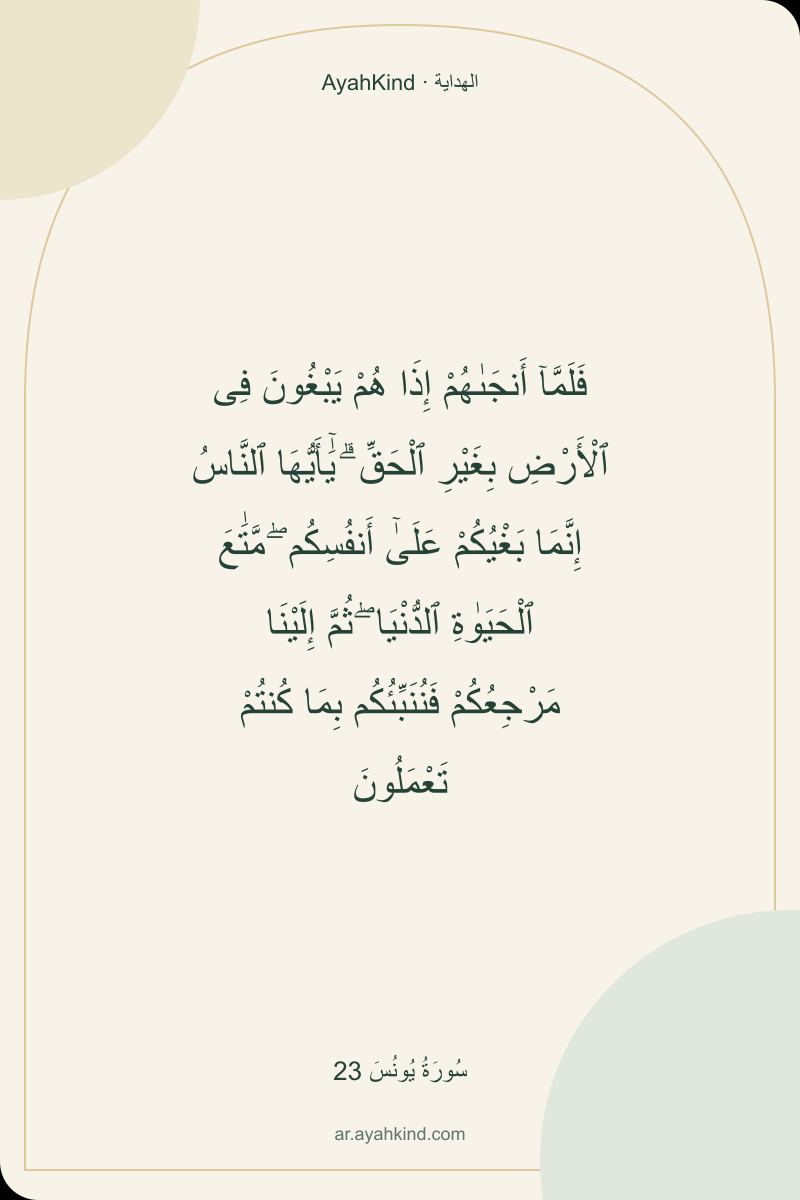 AyahKind · الهداية
فَلَمَّآ أَنجَىٰهُمْ إِذَا هُمْ يَبْغُونَ فِى
ٱلْأَرْضِ بِغَيْرِ ٱلْحَقِّ ۗ يَٰٓأَيُّهَا ٱلنَّاسُ
إِنَّمَا بَغْيُكُمْ عَلَىٰٓ أَنفُسِكُم ۖ مَّتَٰعَ
ٱلْحَيَوٰةِ ٱلدُّنْيَا ۖ ثُمَّ إِلَيْنَا
مَرْجِعُكُمْ فَنُنَبِّئُكُم بِمَا كُنتُمْ
تَعْمَلُونَ
سُورَةُ يُونُسَ 23
ar.ayahkind.com